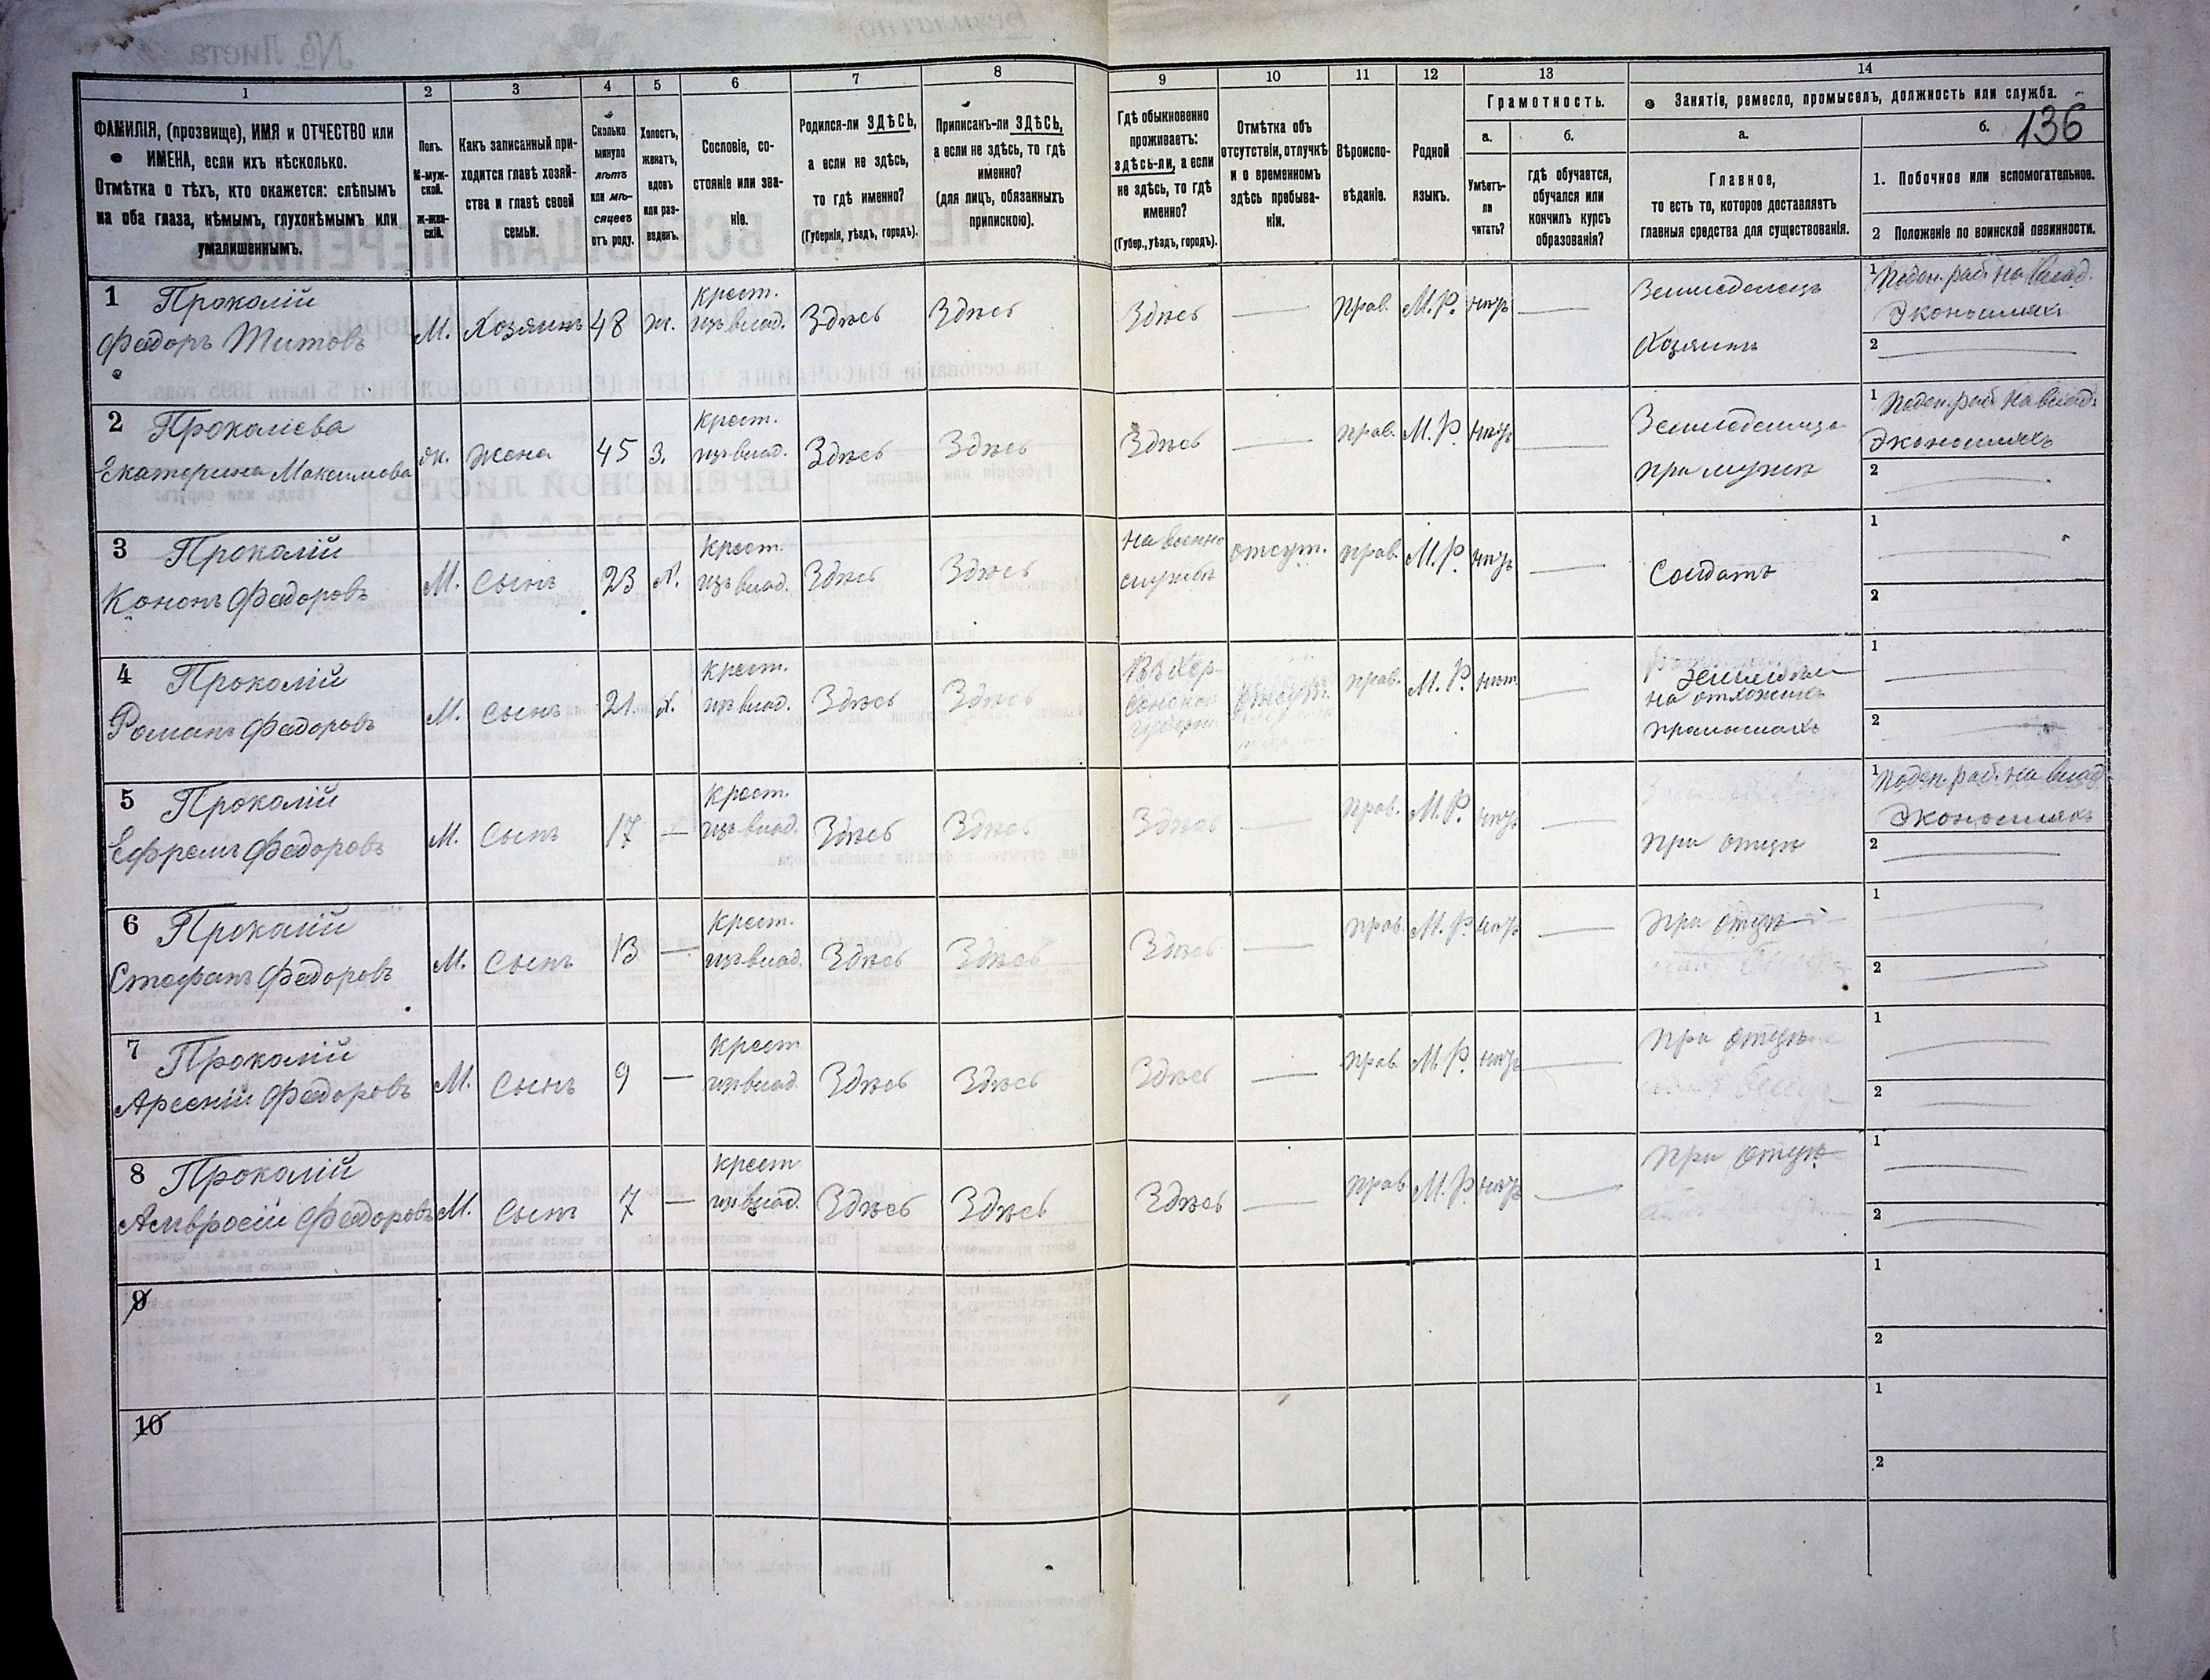 136
1 2 3 4 5 6 7 8 9 10 11 12 13 14
ФАМИЛІЯ, (прозвище), ИМЯ и ОТЧЕСТВО или
ИМЕНА, если ихъ нѣсколько.
Отмѣтка о тѣхъ, кто окажется: слѣпымъ
на оба глаза, нѣмымъ, глухонѣмымъ или
умалишеннымъ.
Полъ.
М-муж-
ской.
ж-жен-
скій.
Какъ записанный при-
ходится главѣ хозяй-
ства и главѣ своей
семьи.
Сколько
минуло
лѣтъ
или мѣ-
сяцевъ
отъ роду.
Холостъ,
женатъ,
вдовъ
или раз-
веденъ.
Сословіе, со-
стояніе или зва-
ніе.
Родился-ли ЗДѢСЬ,
а если не здѣсь,
то гдѣ именно?
(Губернія, уѣздъ, городъ).
Приписанъ-ли ЗДѢСЬ,
а если не здѣсь, то гдѣ
именно?
(для лицъ, обязанныхъ
припискою).
Гдѣ обыкновенно
проживаетъ:
здѣсь-ли, а если
не здѣсь, то гдѣ
именно?
(Губер., уѣздъ, городъ).
Отмѣтка объ
отсутствіи, отлучкѣ
и о временномъ
здѣсь пребыва-
ніи.
Вѣроиспо-
вѣданіе.
Родной
языкъ.
Грамотность.
а.
Умѣетъ-
ли
читать?
б.
гдѣ обучается,
обучался или
кончилъ курсъ
образованія?
Занятіе, ремесло, промыселъ, должность или служба.
а.
Главное,
то есть то, которое доставляетъ
главныя средства для существованія.
б.
1. Побочное или вспомогательное.
2 Положеніе по воинской повинности.
1 Прокопій
Федоръ Титовъ
М. Хозяинъ 48 ж.
крест.
изъ влад.
Здѣсь Здѣсь Здѣсь — прав. М.Р. нѣтъ —
Земледелецъ
Хозяинъ
1 Поден. раб. на влад.
Экономіяхъ
2 —
2 Прокопіева
Екатерина Максимова
ж. жена 45 з.
крест.
изъ влад.
Здѣсь Здѣсь Здѣсь — прав. М.Р. нѣтъ —
Земледелица
при мужѣ
1 Поден. раб. на влад.
Экономіяхъ
2 —
3 Прокопій
Кононъ Федоровъ
М. Сынъ 23 х.
крест.
изъ влад.
Здѣсь Здѣсь
на военн
службѣ
отсут. прав. М.Р. нѣтъ —
Солдатъ
1 —
2 —
4 Прокопій
Романъ Федоровъ
М. сынъ 21. х.
крест.
изъ влад.
Здѣсь Здѣсь
Въ Хер-
сонской
губерн.
отсут. прав. М.Р. нѣт —
на отхожихъ
промыслахъ
1 —
2 —
5 Прокопій
Ефремъ Федоровъ
М. Сынъ 17 —
крест.
изъ влад.
Здѣсь Здѣсь Здѣсь — прав. М.Р. нѣтъ —
при отцѣ
1 Поден. раб. на влад.
Экономіяхъ
2 —
6 Прокопій
Стефанъ Федоровъ
М. Сынъ 13 —
крест.
изъ влад.
Здѣсь Здѣсь Здѣсь — прав. М.Р. нѣтъ —
при отцѣ
1 —
2 —
7 Прокопій
Арсеній Федоровъ
М. Сынъ 9 —
крест
изъ влад.
Здѣсь Здѣсь Здѣсь — прав. М.Р. нѣтъ —
при отцѣ
1 —
2 —
8 Прокопій
Амвросій Федоровъ
М. Сынъ 7 —
крест
изъ влад.
Здѣсь Здѣсь Здѣсь — прав М.Р. нѣтъ —
при отцѣ
1 —
2 —
9
1
2
10
1
2